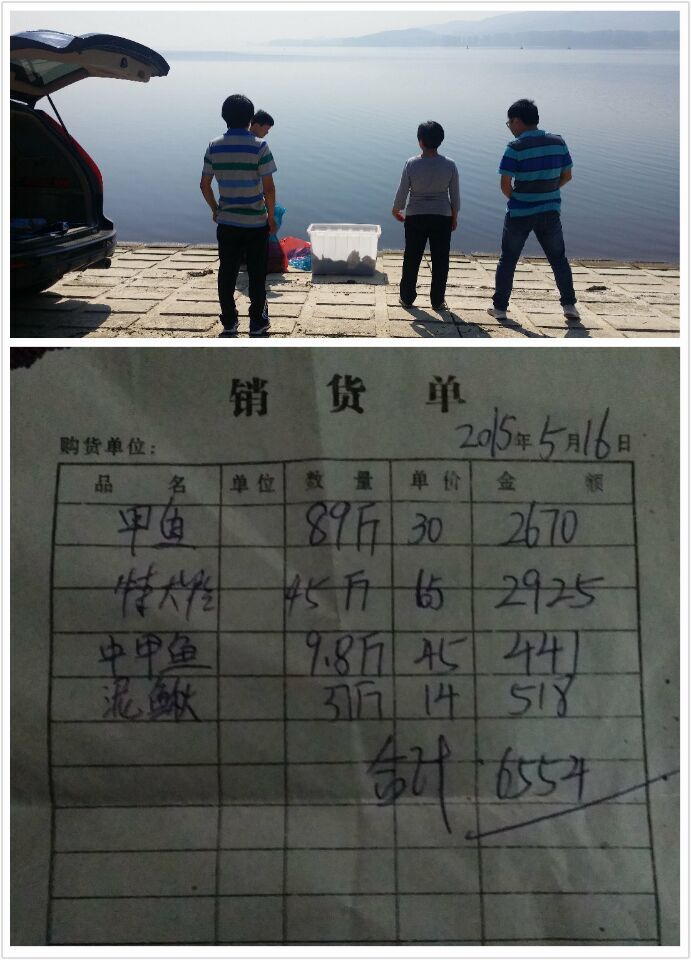 销货单
购货单位: 2015年5月16日
品名 单位 数量 单价 金额
甲鱼 89斤 30 2670
特大 45斤 65 2925
中甲鱼 9.8斤 45 441
泥鳅 37斤 14 518
合计 6554